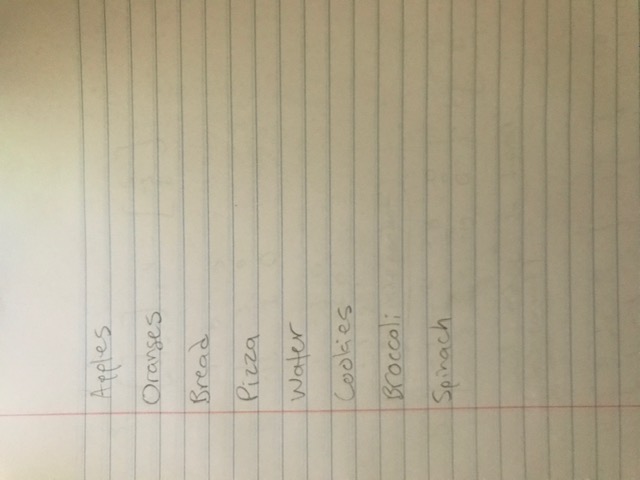 Apples
Oranges
Bread
Pizza
Water
Cookies
Broccoli
Spinach